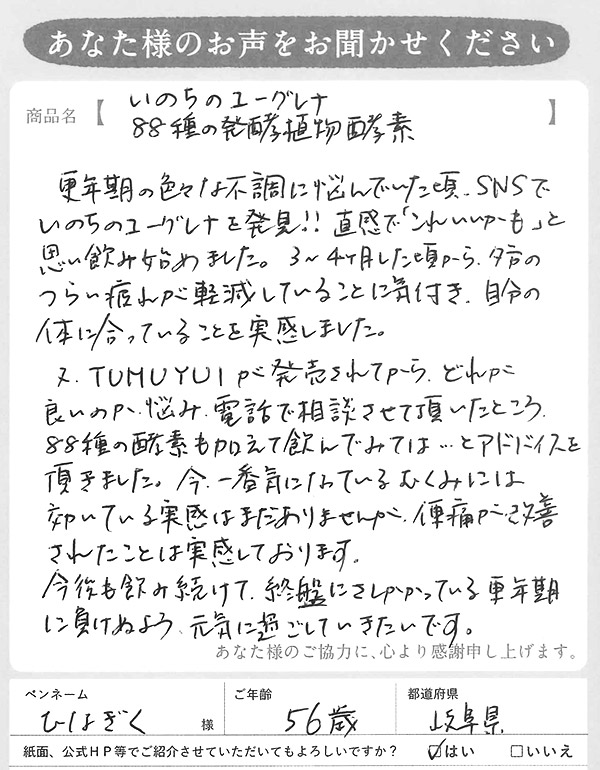 あなた様のお声をお聞かせください
商品名【 いのちのユーグレナ
88種の発酵植物酵素 】
更年期の色々な不調に悩んでいた頃、SNSで
いのちのユーグレナを発見!! 直感で「これいいかも」と
思い飲み始めました。3~4ヶ月した頃から、夕方の
つらい疲れが軽減していることに気付き、自分の
体に合っていることを実感しました。
又、TUMUYUIが発売されてから、どれが
良いのか、悩み、電話で相談させて頂いたところ、
88種の酵素も加えて飲んでみては…とアドバイスを
頂きました。今、一番気になっているむくみには
効いている実感はまだありませんが、便痛が改善
されたことは実感しております。
今後も飲み続けて、終盤にさしかかっている更年期
に負けぬよう、元気に過ごしていきたいです。
あなた様のご協力に、心より感謝申し上げます。
ペンネーム ご年齢 都道府県
ひなぎく 様 56歳 岐阜県
紙面、公式HP等でご紹介させていただいてもよろしいですか? ☑はい □いいえ